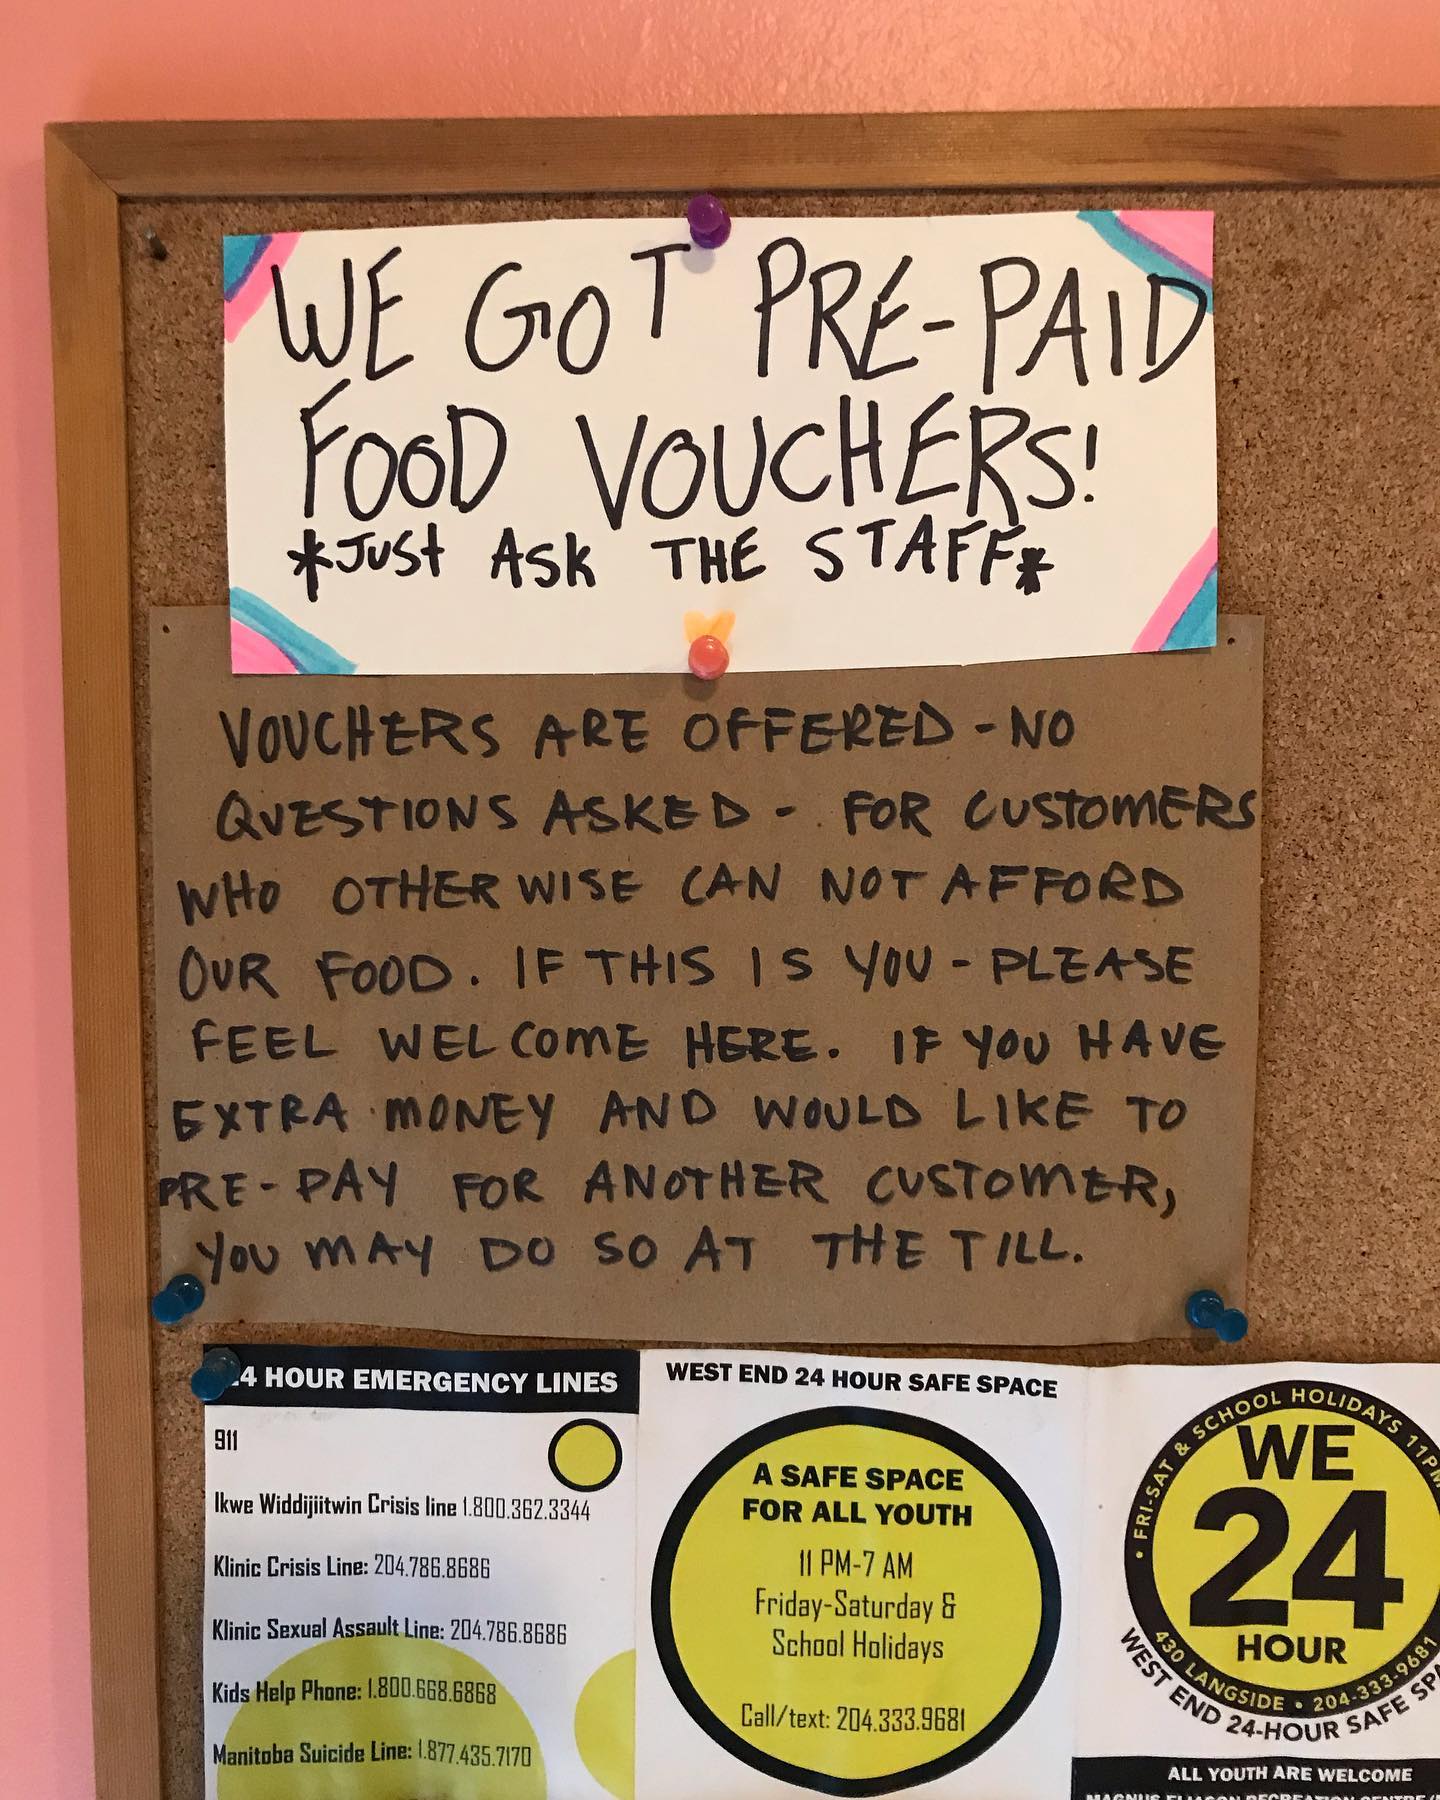 WE GOT PRE-PAID
FOOD VOUCHERS!
*JUST ASK THE STAFF*
VOUCHERS ARE OFFERED - NO
QUESTIONS ASKED - FOR CUSTOMERS
WHO OTHERWISE CAN NOT AFFORD
OUR FOOD. IF THIS IS YOU - PLEASE
FEEL WELCOME HERE. IF YOU HAVE
EXTRA MONEY AND WOULD LIKE TO
PRE-PAY FOR ANOTHER CUSTOMER,
YOU MAY DO SO AT THE TILL.
4 HOUR EMERGENCY LINES
911
Ikwe Widdijiitwin Crisis line 1.800.362.3344
Klinic Crisis Line: 204.786.8686
Klinic Sexual Assault Line: 204.786.8686
Kids Help Phone: 1.800.668.6868
Manitoba Suicide Line: 1.877.435.7170
WEST END 24 HOUR SAFE SPACE
A SAFE SPACE
FOR ALL YOUTH
11 PM-7 AM
Friday-Saturday &
School Holidays
Call/text: 204.333.9681
• FRI-SAT & SCHOOL HOLIDAYS 11PM
WE
24
HOUR
430 LANGSIDE • 204-333-9681
WEST END 24-HOUR SAFE SPA
ALL YOUTH ARE WELCOME
MAGNUS ELIASON RECREATION CENTRE